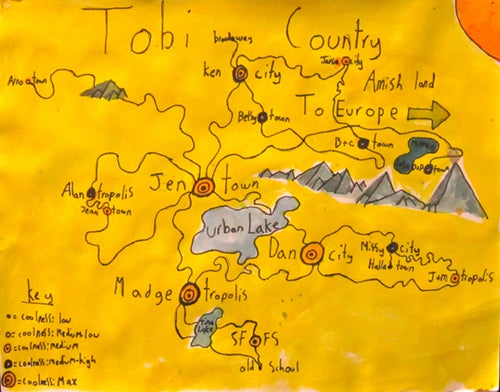 Tobi Country
broadaway
Ken city
Jersey city
Amish land
Arno town
To Europe
Betsy town
Bre town
town
Jen town
Alan tropolis
Jean town
Urban Lake
Dan city
Missy city
Halle town
J+M tropolis
Madge tropolis
Tina Lake
SF FS
old School
Key
= coolness: low
= coolness: Medium-low
= coolness: medium
= coolness: medium-high
= coolness: Max